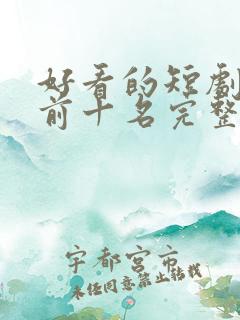 好看的短劇
前十名完整
宇都宮市
未经同意禁止转载